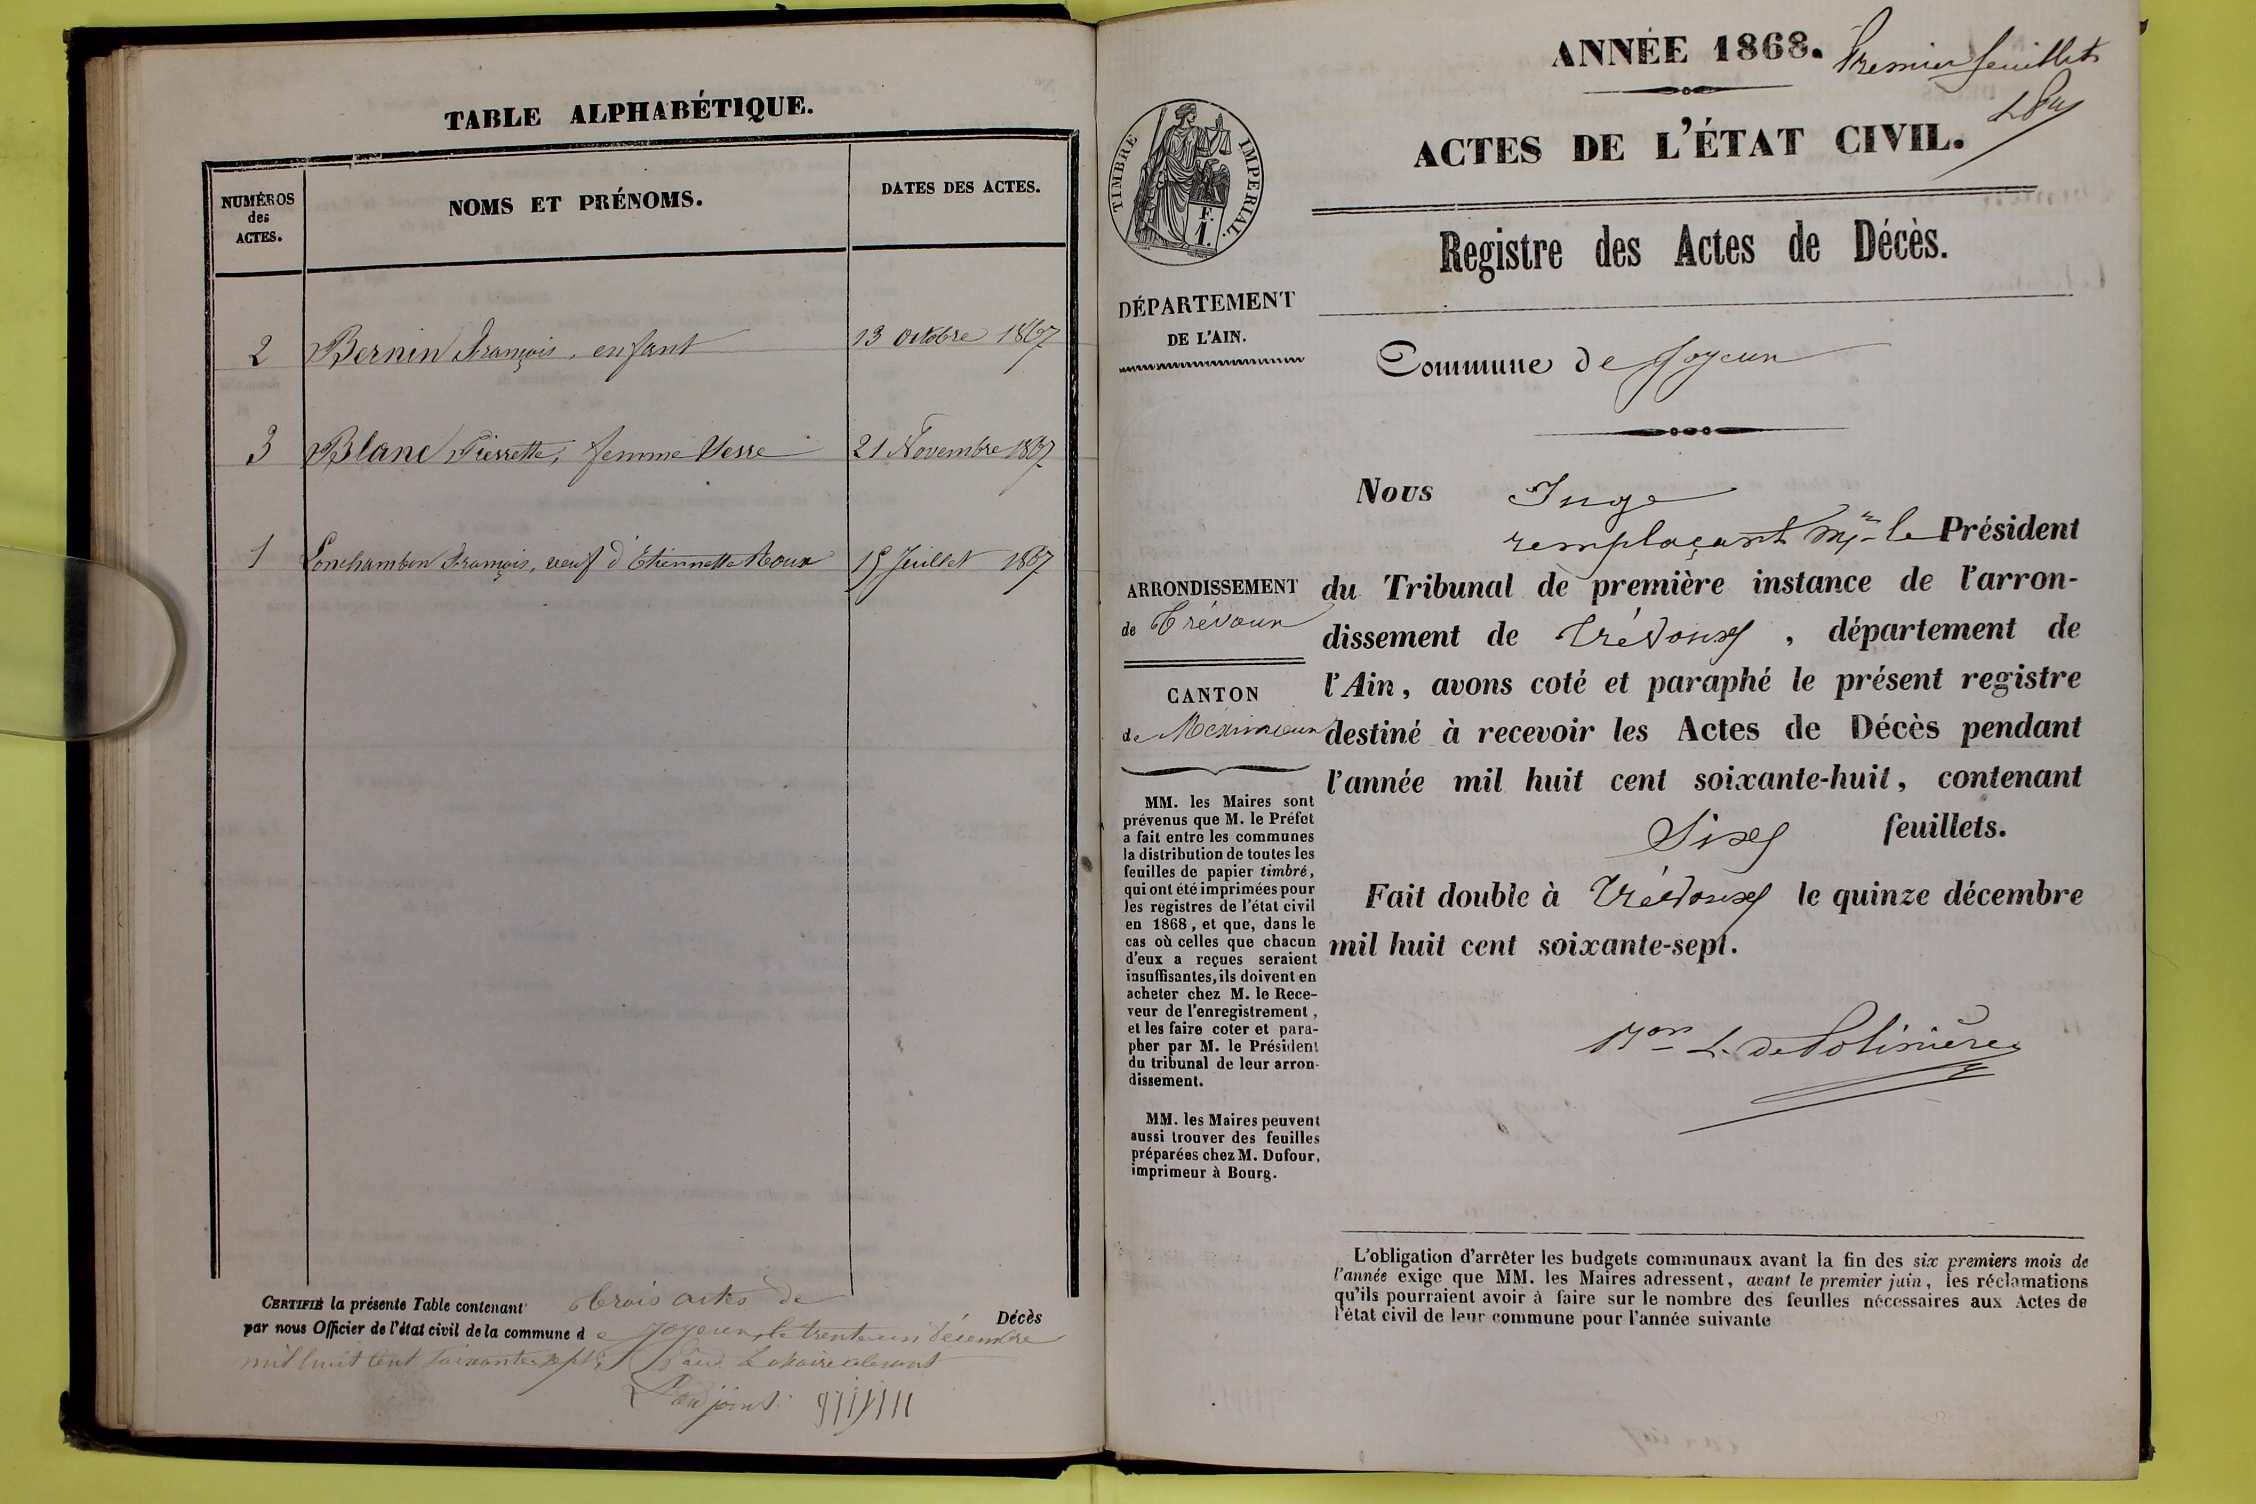 TABLE ALPHABÉTIQUE.
NUMÉROS
des
ACTES.
NOMS ET PRÉNOMS.
DATES DES ACTES.
2 Bernin François, enfant 13 octobre 1867
3 Blanc Pierrette, femme Vesse 21 Novembre 1867
1 Lonchambon François, veuf d'Etiennette Roux 15 Juillet 1867
CERTIFIÉ la présente Table contenant trois actes de
Décès
par nous Officier de l'état civil de la commune de Joyeux le trente un décembre
mil huit cent soixante sept.
L'adjoint
ANNÉE 1868.
Premier feuillet
ACTES DE L'ÉTAT CIVIL.
TIMBRE IMPÉRIAL.
F.
1.
Registre des Actes de Décès.
DÉPARTEMENT
DE L'AIN.
Commune de Joyeux
ARRONDISSEMENT
de Trévoux
CANTON
de Meximieux
MM. les Maires sont
prévenus que M. le Préfet
a fait entre les communes
la distribution de toutes les
feuilles de papier timbré,
qui ont été imprimées pour
les registres de l'état civil
en 1868, et que, dans le
cas où celles que chacun
d'eux a reçues seraient
insuffisantes, ils doivent en
acheter chez M. le Rece-
veur de l'enregistrement,
et les faire coter et para-
pher par M. le Président
du tribunal de leur arron-
dissement.
MM. les Maires peuvent
aussi trouver des feuilles
préparées chez M. Dufour,
imprimeur à Bourg.
Nous Juge
remplaçant Mr le Président
du Tribunal de première instance de l'arron-
dissement de Trévoux, département de
l'Ain, avons coté et paraphé le présent registre
destiné à recevoir les Actes de Décès pendant
l'année mil huit cent soixante-huit, contenant
Six feuillets.
Fait double à Trévoux le quinze décembre
mil huit cent soixante-sept.
Bon L. de Polinière
L'obligation d'arrêter les budgets communaux avant la fin des six premiers mois de
l'année exige que MM. les Maires adressent, avant le premier juin, les réclamations
qu'ils pourraient avoir à faire sur le nombre des feuilles nécessaires aux Actes de
l'état civil de leur commune pour l'année suivante